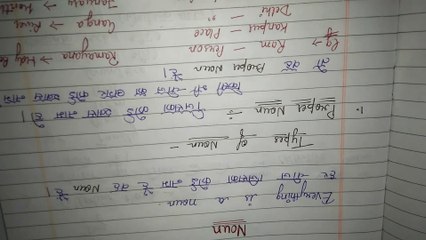 Noun
Everything is a noun.
हर चीज जिसका कोई नाम है वह Noun है।
Types of Noun -
1. Proper Noun :- जिसका कोई खास नाम है।
किसी भी चीज का अगर कोई खास नाम
है तो वह Proper Noun है।
Eg → Ram - Person
Kanpur - Place
Delhi - "
Ganga → River
Ramayana → Holy
January → Month